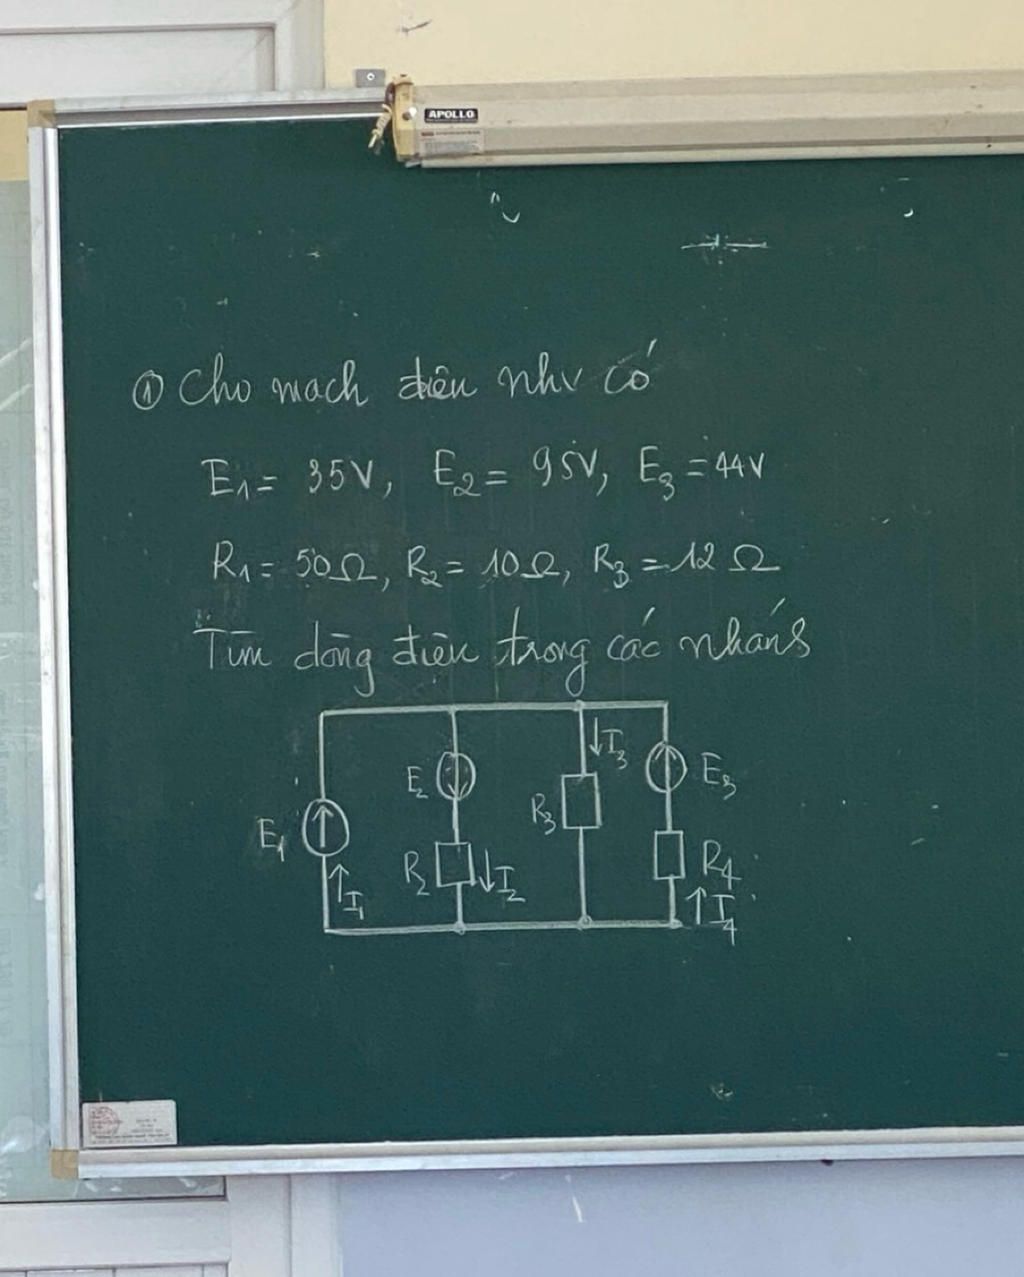 APOLLO
① Cho mạch điện như có
E₁ = 35V, E₂ = 95V, E₃ = 44V
R₁ = 50Ω, R₂ = 10Ω, R₃ = 12Ω
Tìm dòng điện trong các nhánh
I₃
E₂ E₃
R₃
E₁
R₂ I₂ R₄
I₁ I₄